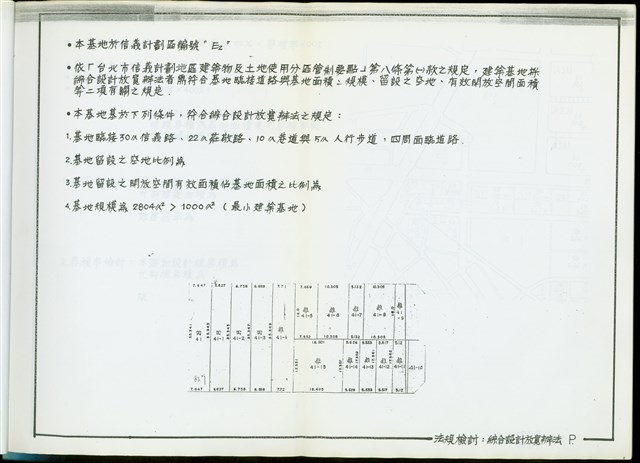 • 本基地於信義計劃區編號 "E2"
• 依「台北市信義計劃地區建築物及土地使用分區管制要點」第八條第(一)款之規定，建築基地採
綜合設計放寬辦法者需符合基地臨接道路與基地面積之規模、留設之空地、有效開放空間面積
等二項有關之規定．
• 本基地基於下列條件，符合綜合設計放寬辦法之規定：
1.基地臨接30M信義路、22M莊敬路、10M巷道與5M人行步道，四周面臨道路．
2.基地留設之空地比例為
3.基地留設之開放空間有效面積佔基地面積之比例為
4.基地規模為2804M² > 1000M² (最小建築基地)
41 41-1 41-2 41-3 41-4
41-5 41-6 41-7 41-8 41-9
16.201
41-15 41-14 41-13 41-12 41-11 41-10
法規檢討：綜合設計放寬辦法 P.